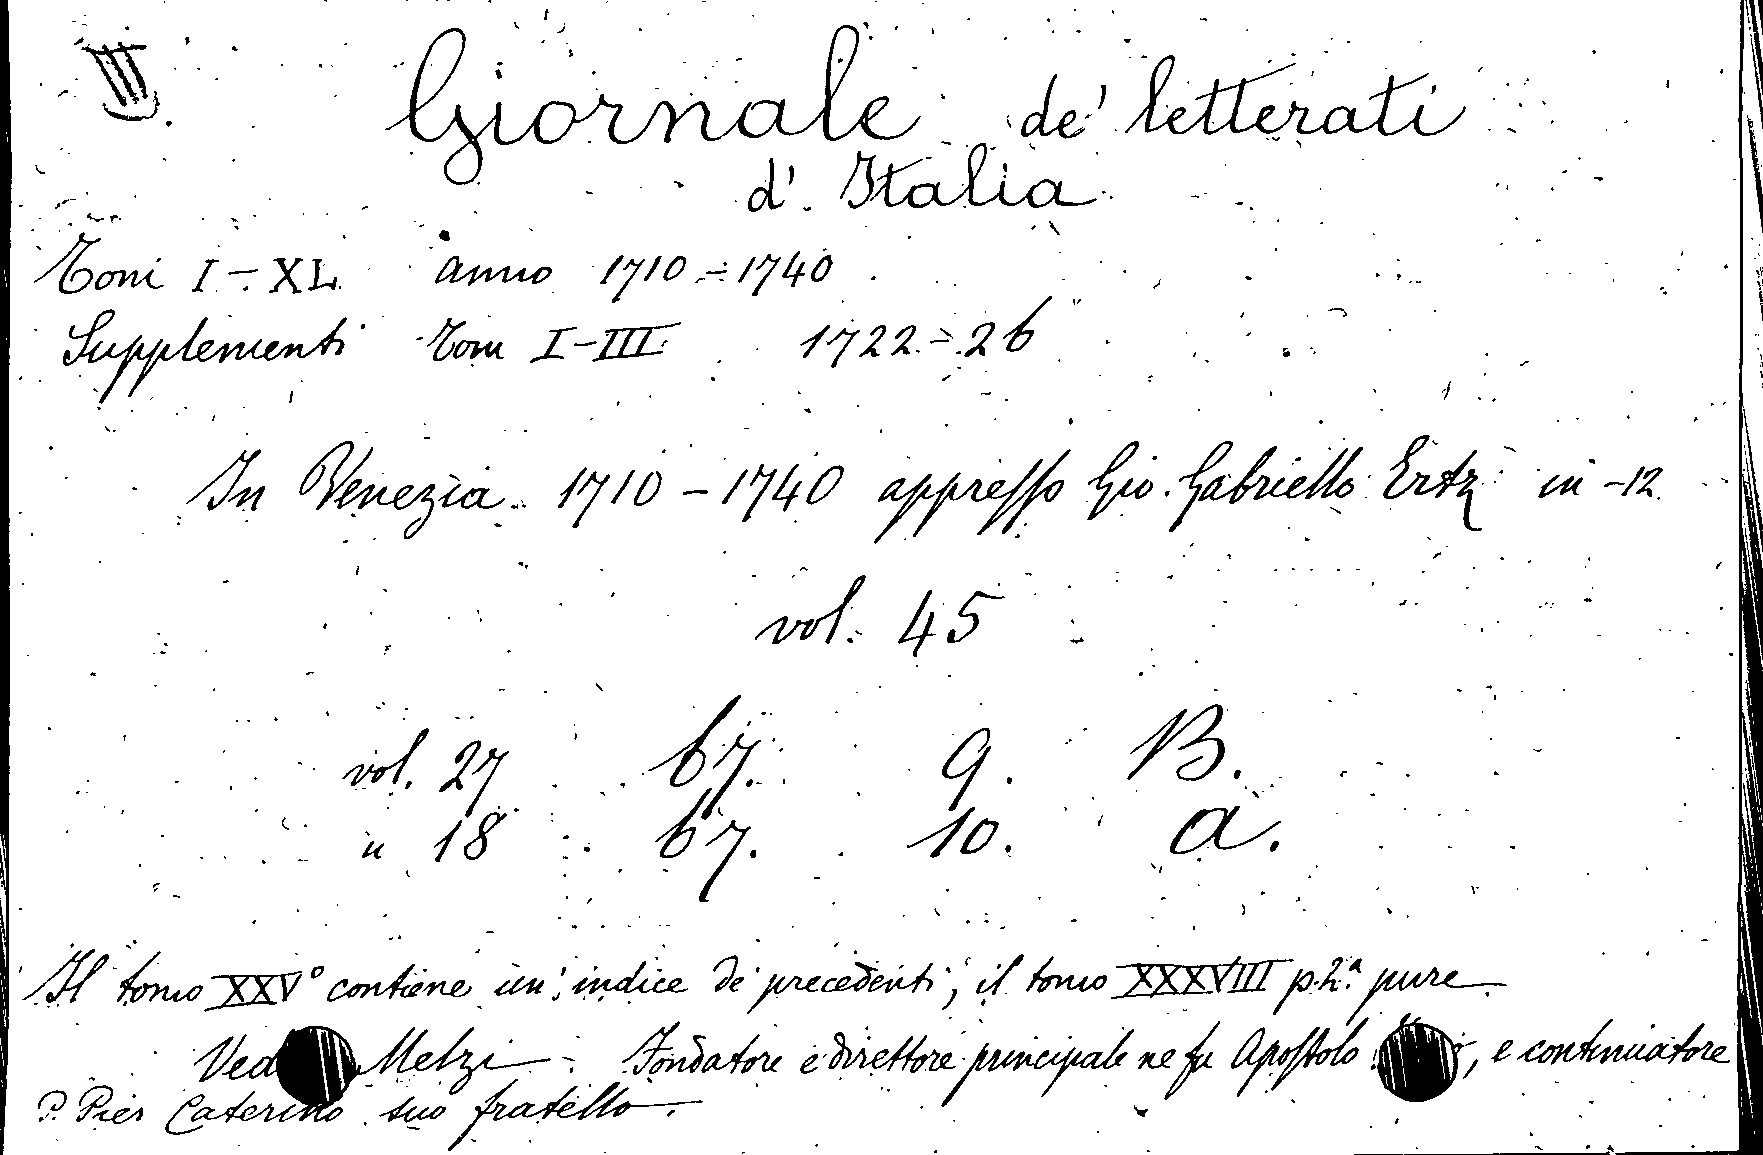 Giornale de' letterati
d'Italia
Tomi I - XL anno 1710 = 1740
Supplementi Tomi I-III 1722 = 26
In Venezia 1710 - 1740 appresso Gio. Gabriello Ertz in -12
vol. 45
vol. 27 67. 9. B.
" 18 67. 10. A.
Il tomo XXV° contiene un' indice de' precedenti, il tomo XXXVIII p. 2ª pure
Melzi - Fondatore e direttore principale ne fu Apostolo , e continuatore
P. Pier Caterino suo fratello.